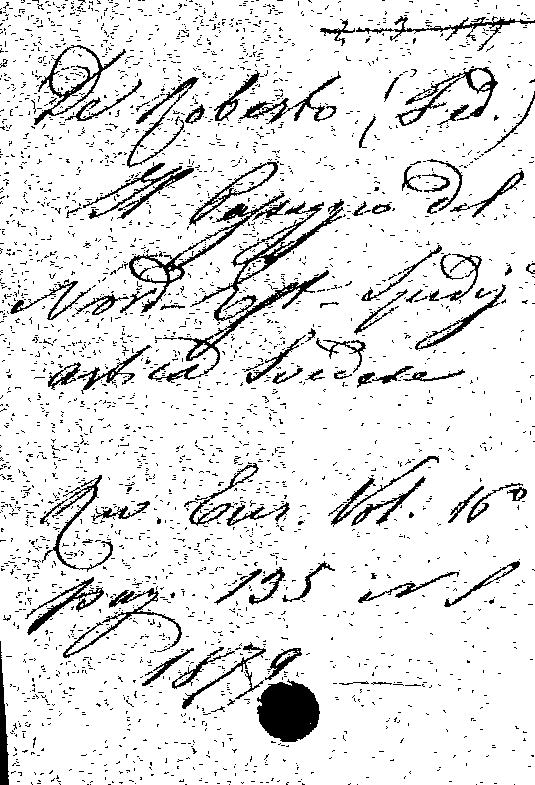 2. 3. 177
De Roberto (Fed.)
Il Passaggio del
Nord-Est - Spediz.
artica Svedese
Riv. Eur. Vol. 16°
pag. 135 in 8.
1879